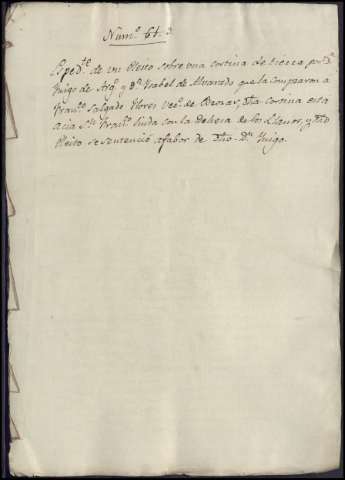 Num.º 61.
Esped.te de un Pleito sobre una cortina de tierra, por Dn.
Yñigo de Arg.ⁿ y D.ª Ysabel de Alvarado que la compraron a
Fran.co Salgado Flores Vec.º de Bexar, dha cortina esta
acia Sn. Fran.co linda con la Dehesa de los Llanos, y dho
Pleito se sentenció a fabor de dho Dn. Yñigo.